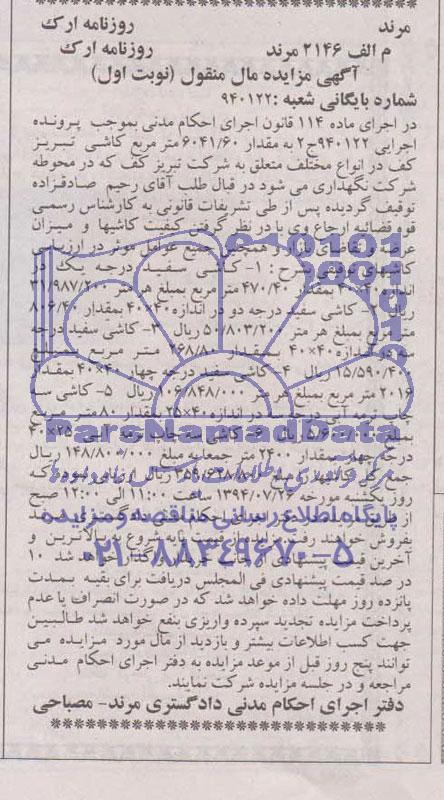 مرند روزنامه ارک
م الف ۲۱۴۶ مرند روزنامه ارک
آگهی مزایده مال منقول (نوبت اول)
شماره بایگانی شعبه :۹۴۰۱۲۲
در اجرای ماده ۱۱۴ قانون اجرای احکام مدنی بموجب پرونده
اجرایی ۹۴۰۱۲۲ج۲ به مقدار ۶۰۴۱/۶۰ متر مربع کاشی تبریز
کف در انواع مختلف متعلق به شرکت تبریز کف که در محوطه
شرکت نگهداری می شود در قبال طلب آقای رحیم صادقزاده
توقیف گردیده پس از طی تشریفات قانونی به کارشناس رسمی
قوه قضائیه ارجاع وی با در نظر گرفتن کیفیت کاشیها و میزان
عرضه و تقاضای بازار و همچنین جمیع عوامل موثر در ارزیابی
کاشیهای توقیفی بشرح : ۱- کاشی سفید درجه یک در
اندازه ۴۰×۴۰ بمقدار ۴۷۰/۴۰ متر مربع بمبلغ هر متر
ریال کاشی سفید درجه دو در اندازه ۴۰×۴۰ بمقدار ۸۰۶/۴۰
متر مربع بمبلغ هر متر ۵۰/۸۰۳/۲۰۰ ریال ۳- کاشی سفید درجه
سه در اندازه ۴۰×۴۰ بمقدار متر مربع بمبلغ
ریال ۴- کاشی سفید درجه چهار ۴۰×۴۰ بمقدار
۲۰۱۶ متر مربع بمبلغ هر متر ۱۰۶/۸۴۸/۰۰۰ ریال ۵- کاشی سه
چاپ ترمه آبی درجه سه در اندازه ۴۰×۲۵ بمقدار ۸۰ متر مربع
بمبلغ ریال ۶- کاشی سه چاپ ترمه آبی ۲۵×۴۰
درجه چهار بمقدار ۲۴۰۰ متر جمعا به مبلغ ۱۴۸/۸۰۰/۰۰۰ ریال
جمع کل کاشیها ریال ارزیابی نموده که
روز یکشنبه مورخه ۱۳۹۴/۰۷/۲۶ ساعت ۱۱:۰۰ الی ۱۲:۰۰ صبح
از طریق مزایده در اجرای احکام مدنی دادگستری مرند
بفروش خواهند رفت مزایده از قیمت پایه شروع به بالاترین و
آخرین قیمت پیشنهادی از واگذار خواهد شد ۱۰
در صد قیمت پیشنهادی فی المجلس دریافت برای بقیه بمدت
پانزده روز مهلت داده خواهد شد که در صورت انصراف یا عدم
پرداخت مزایده تجدید سپرده واریزی بنفع خواهد شد طالبین
جهت کسب اطلاعات بیشتر و بازدید از مال مورد مزایده می
توانند پنج روز قبل از موعد مزایده به دفتر اجرای احکام مدنی
مراجعه و در جلسه مزایده شرکت نمایند.
دفتر اجرای احکام مدنی دادگستری مرند- مصباحی
ParsNamadData
پایگاه اطلاع رسانی مناقصه و مزایده
۰۲۱-۸۸۳۴۹۶۷۰-۵